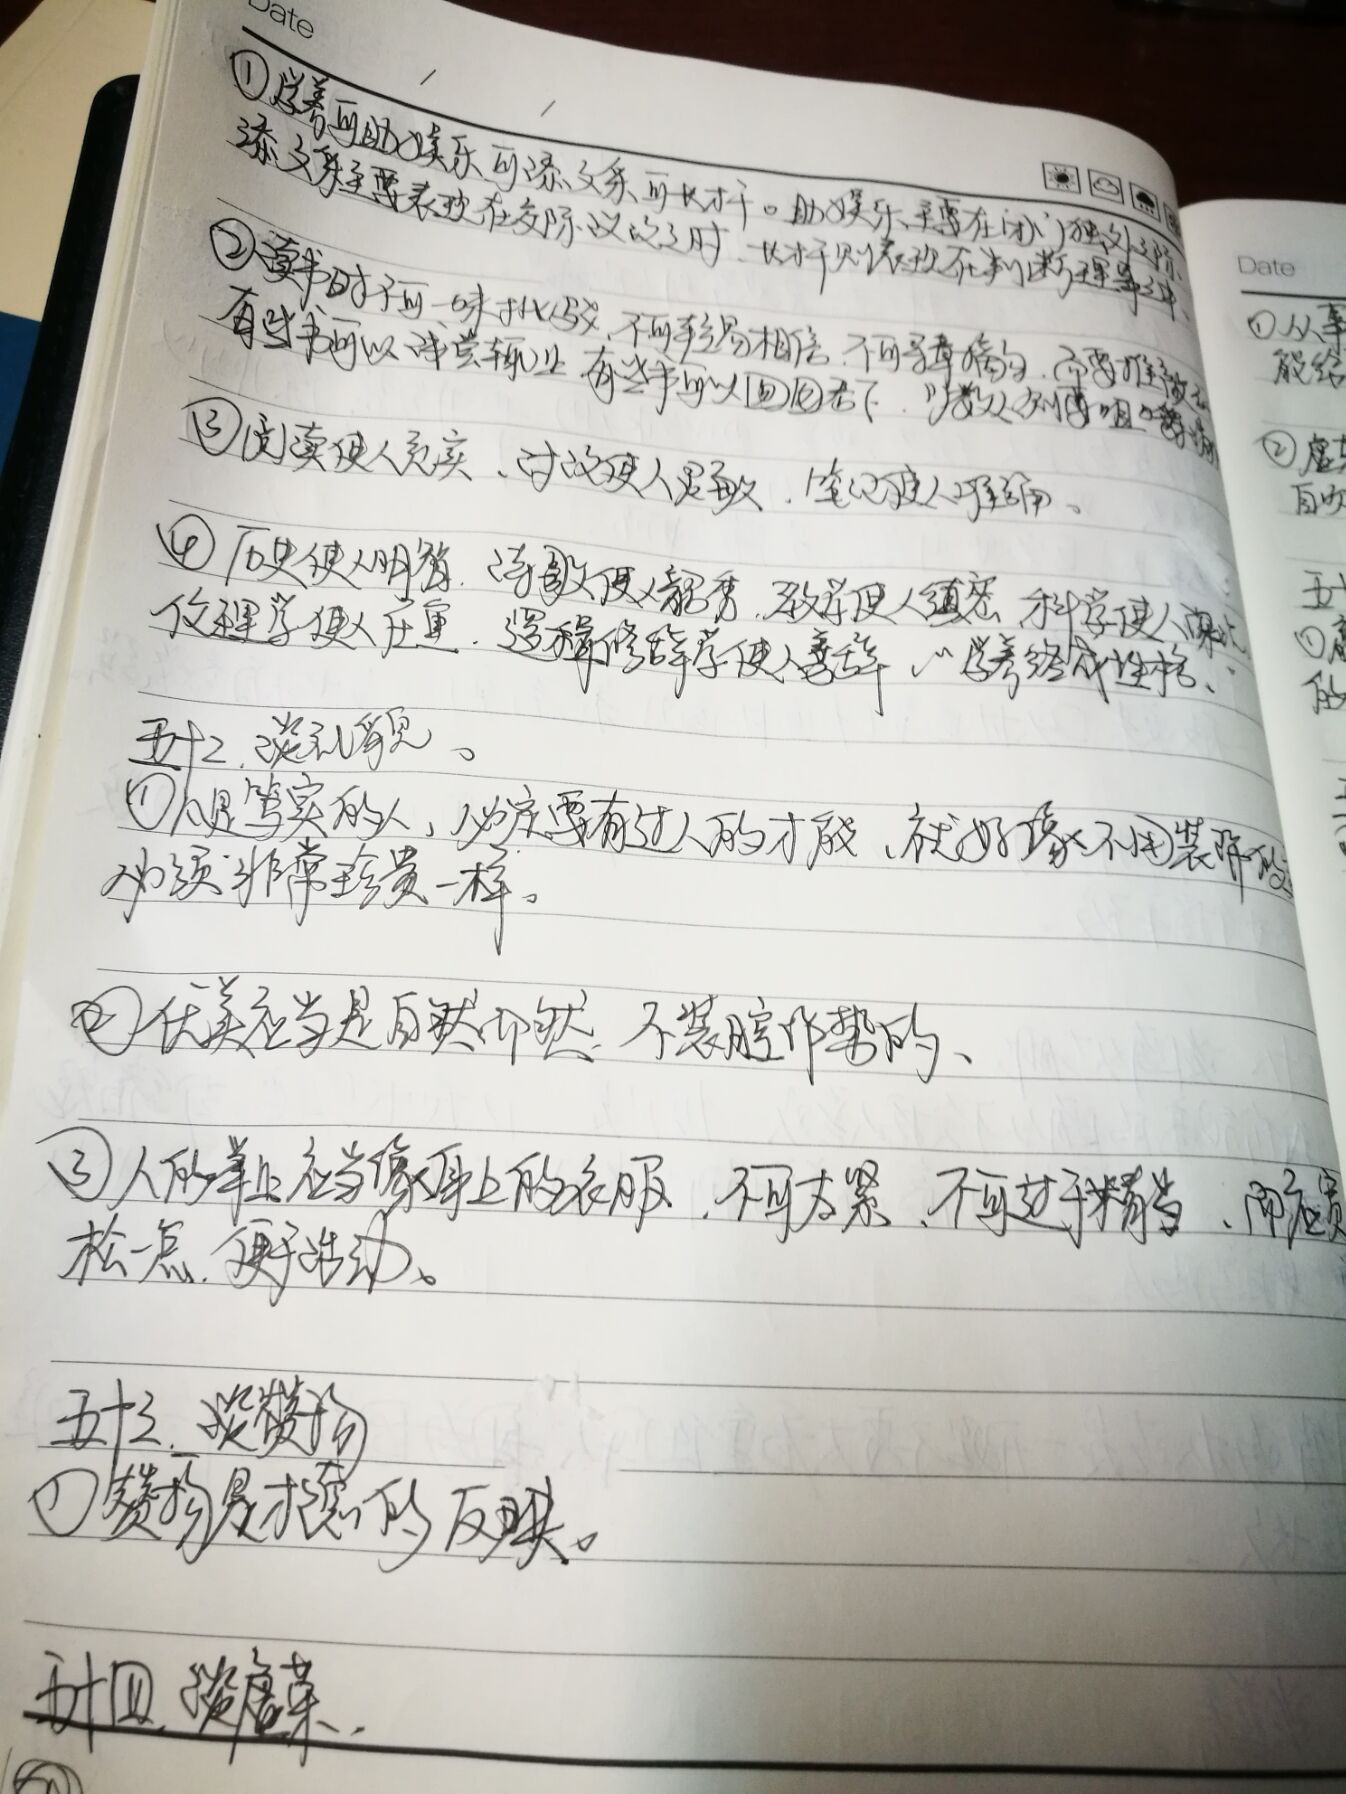 Date
①学养可助娱乐可添文采可长才干。助娱乐主要在闭门独处之际、
添文采主要表现在交际议论之时、长才干则表现在判断理事之中、
②读书时不可一味挑驳,不可轻易相信,不可寻章摘句,而要推敲
有些书可以浅尝辄止 有些书可以囫囵吞下,少数人则要咀嚼
③阅读使人充实、讨论使人灵敏、笔记使人准确、
④历史使人明智,诗歌使人灵秀,数学使人缜密 科学使人深
伦理学使人庄重、逻辑修辞学使人善辞,“学养终成性格、”
五十二、谈礼貌。
①凡是笃实的人,必定要有过人的才能、就好像不用装饰的
必须非常珍贵一样。
②优美应当是自然而然、不装腔作势的、
③人的举止应当像身上的衣服,不可太紧、不可过于精当、而应宽
松一点,便于活动。
五十三、谈赞扬
①赞扬是才德的反映。
五十四、谈虚荣、
Date
①从事
能给
②虚
自吹
五十
①
的